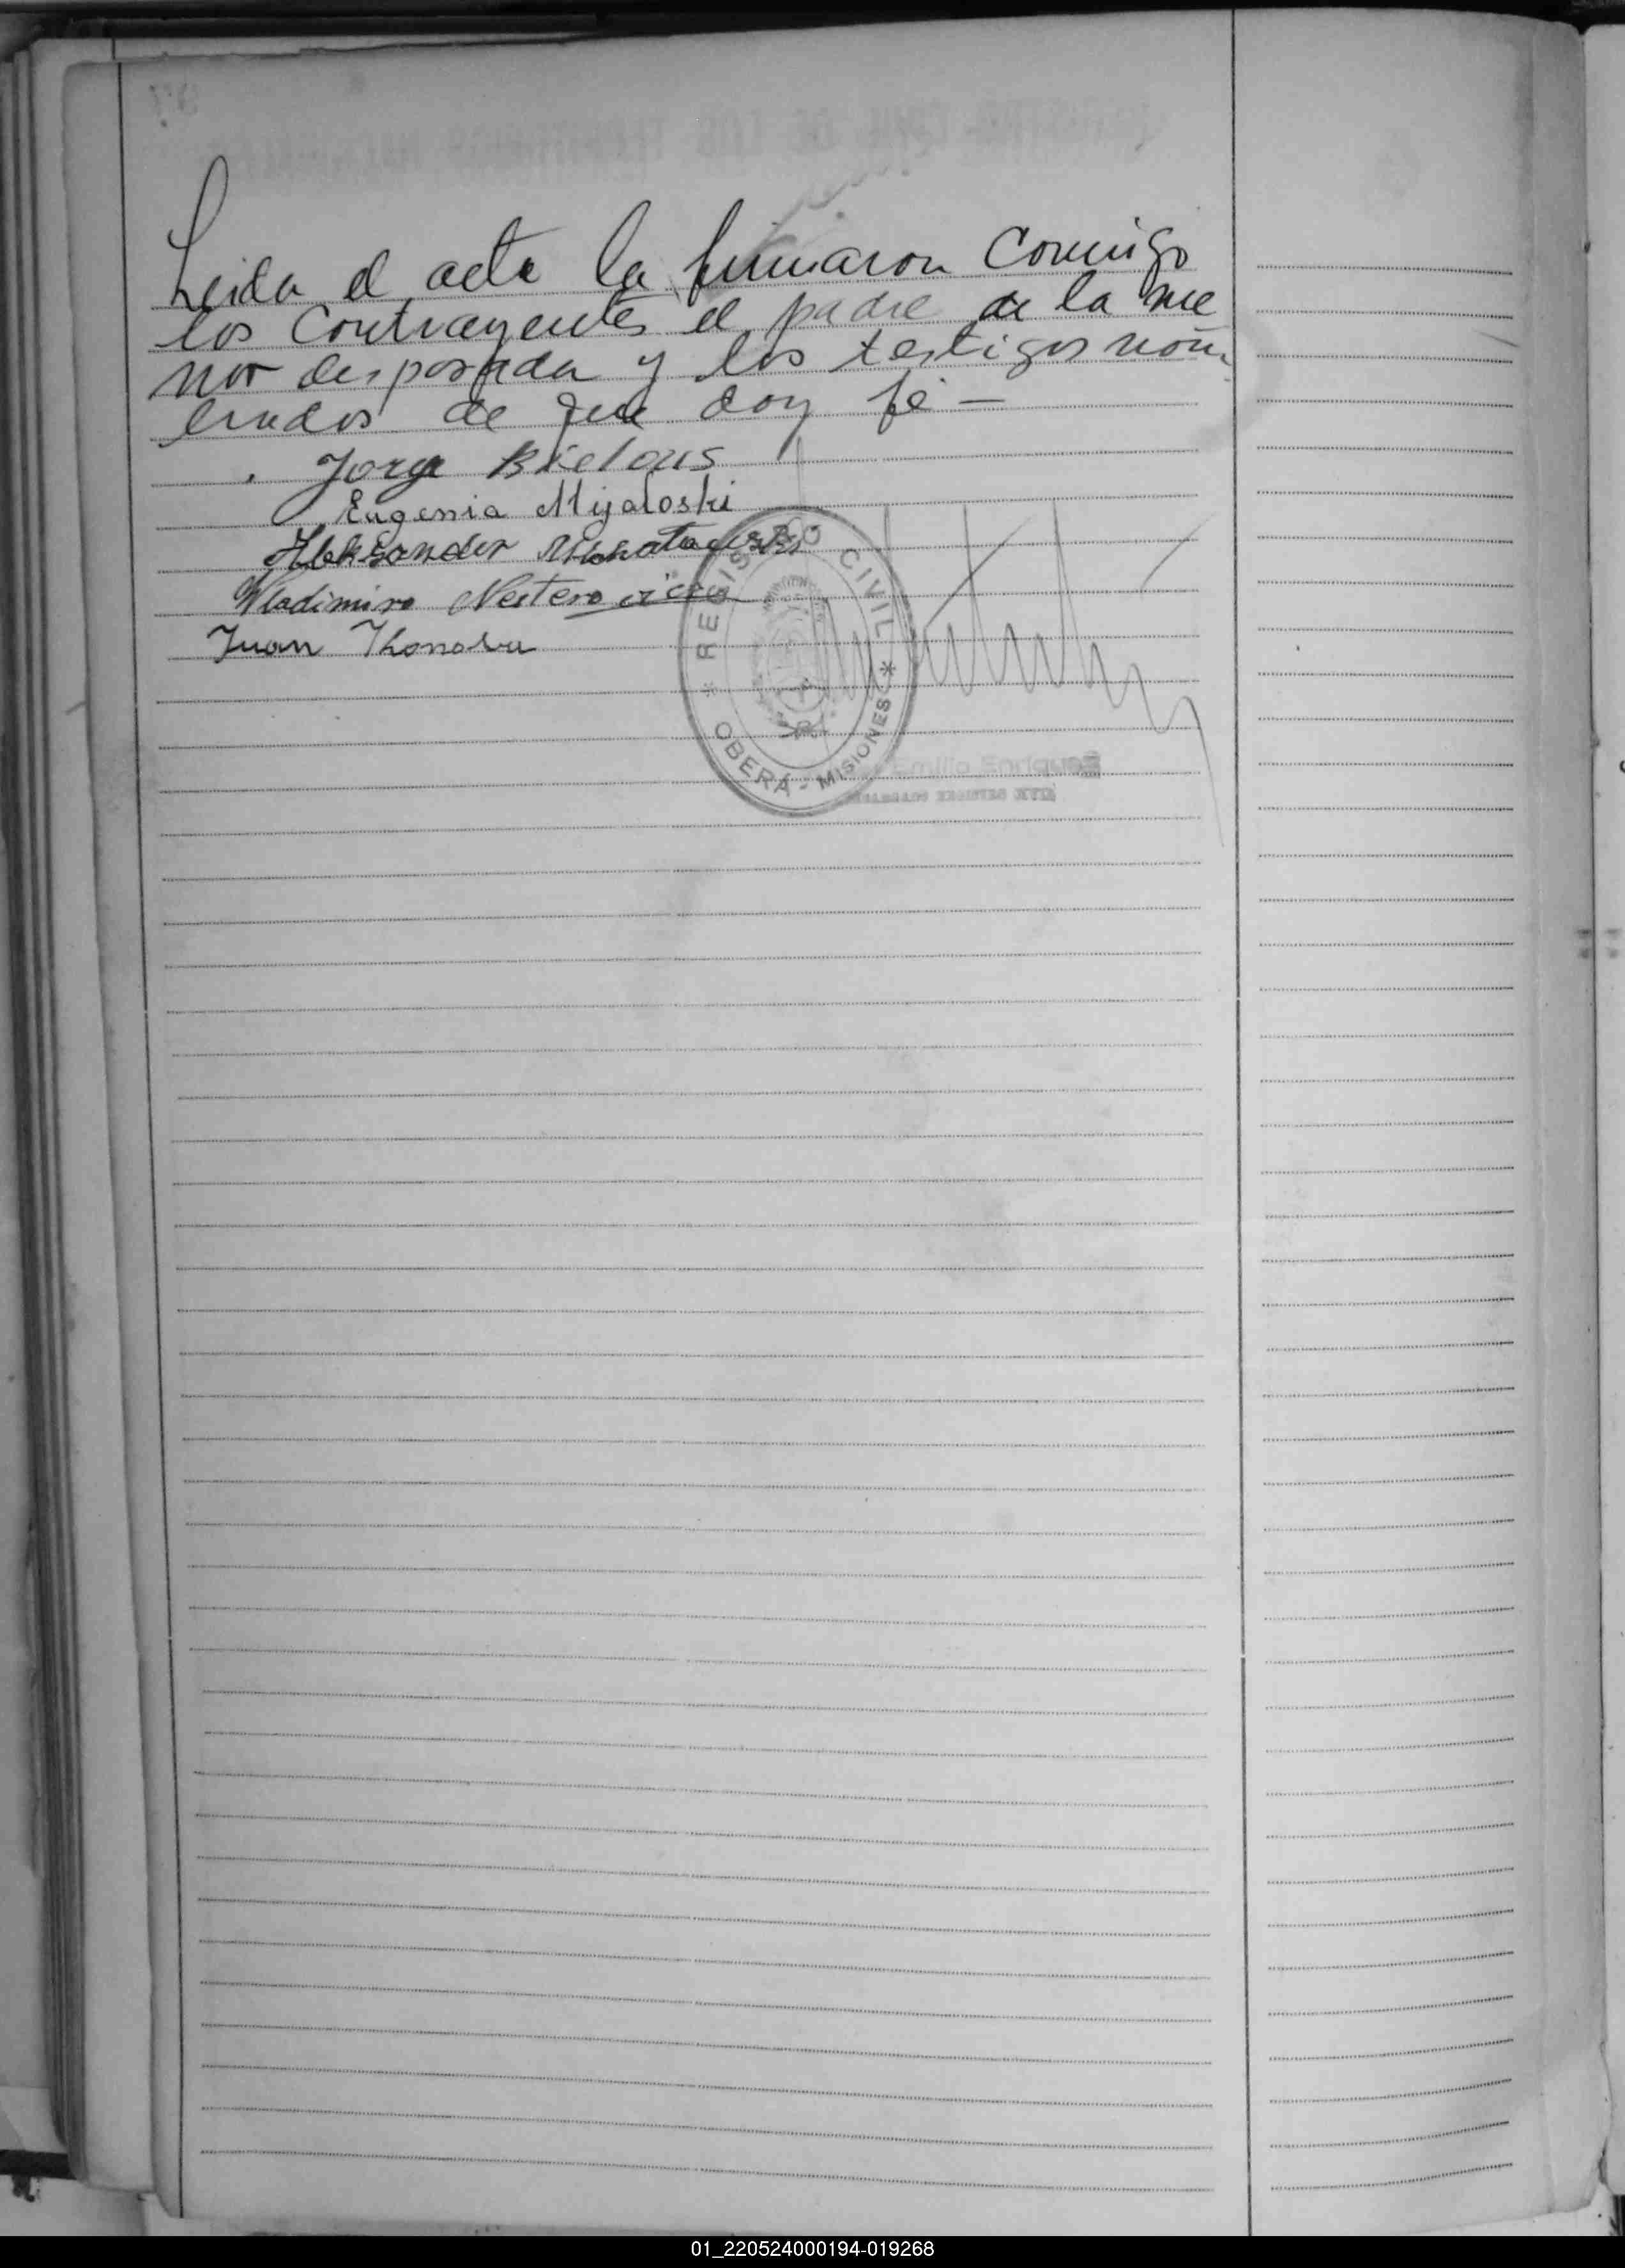 Leida el acta la firmaron Conmigo
los Contrayentes el padre de la me
nor desposada y los testigos nom
brados de que doy fé —
Jorge Bielous
Eugenia Mijaloski
Aleksander
Wladimiro Nesterovicz
Juan
* REGISTRO CIVIL *
OBERÁ - MISIONES
Emilio Enriquez
01_220524000194-019268